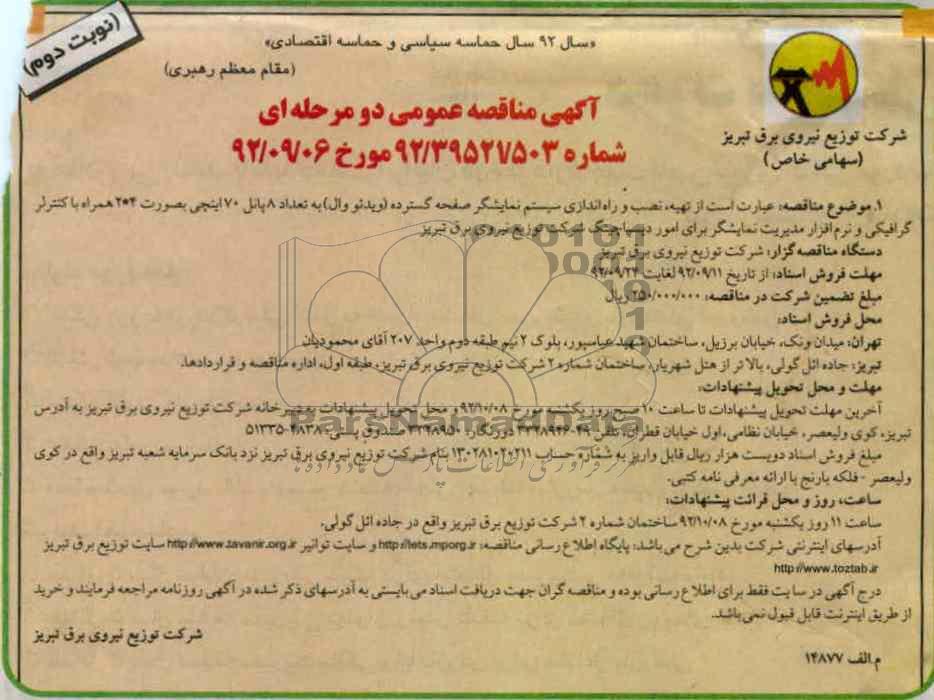 (نوبت دوم)
«سال ۹۲ سال حماسه سیاسی و حماسه اقتصادی»
(مقام معظم رهبری)
شرکت توزیع نیروی برق تبریز
(سهامی خاص)
آگهی مناقصه عمومی دو مرحله ای
شماره ۹۲/۳۹۵۲۷/۵۰۳ مورخ ۹۲/۰۹/۰۶
۱. موضوع مناقصه: عبارت است از تهیه، نصب و راه اندازی سیستم نمایشگر صفحه گسترده (ویدئو وال) به تعداد ۸ پانل ۷۰ اینچی بصورت ۴*۲ همراه با کنترلر
گرافیکی و نرم افزار مدیریت نمایشگر برای امور دیسپاچینگ شرکت توزیع نیروی برق تبریز
دستگاه مناقصه گزار: شرکت توزیع نیروی برق تبریز
مهلت فروش اسناد: از تاریخ ۹۲/۰۹/۱۱ لغایت ۹۲/۰۹/۲۴
مبلغ تضمین شرکت در مناقصه: ۲۵۰/۰۰۰/۰۰۰ ریال
محل فروش اسناد:
تهران: میدان ونک، خیابان برزیل، ساختمان شهید عباسپور، بلوک ۲ نیم طبقه دوم واحد ۲۰۷ آقای محمودیان
تبریز: جاده ائل گولی، بالاتر از هتل شهریار، ساختمان شماره ۲ شرکت توزیع نیروی برق تبریز، طبقه اول، اداره مناقصه و قراردادها.
مهلت و محل تحویل پیشنهادات:
آخرین مهلت تحویل پیشنهادات تا ساعت ۱۰ صبح روز یکشنبه مورخ ۹۲/۱۰/۰۸ و محل تحویل پیشنهادات به دبیرخانه شرکت توزیع نیروی برق تبریز به آدرس
تبریز، کوی ولیعصر، خیابان نظامی، اول خیابان قطران، تلفن ۲۹-۳۳۲۸۹۲۶ دورنگار: ۳۳۲۸۹۵۰ صندوق پستی: ۴۸۳۸-۵۱۳۳۵
مبلغ فروش اسناد دویست هزار ریال قابل واریز به شماره حساب ۱۳۰۲۸۱۰۲۰۲۱۱ بنام شرکت توزیع نیروی برق تبریز نزد بانک سرمایه شعبه تبریز واقع در کوی
ولیعصر - فلکه بارنج با ارائه معرفی نامه کتبی.
ساعت، روز و محل قرائت پیشنهادات:
ساعت ۱۱ روز یکشنبه مورخ ۹۲/۱۰/۰۸ ساختمان شماره ۲ شرکت توزیع برق تبریز واقع در جاده ائل گولی.
آدرسهای اینترنتی شرکت بدین شرح می باشد: پایگاه اطلاع رسانی مناقصه: http://iets.mporg.ir و سایت توانیر http://www.tavanir.org.ir سایت توزیع برق تبریز
http://www.toztab.ir
درج آگهی در سایت فقط برای اطلاع رسانی بوده و مناقصه گران جهت دریافت اسناد می بایستی به آدرسهای ذکر شده در آگهی روزنامه مراجعه فرمایند و خرید
از طریق اینترنت قابل قبول نمی باشد.
شرکت توزیع نیروی برق تبریز
م.الف ۱۴۸۷۷
ParsNamadData